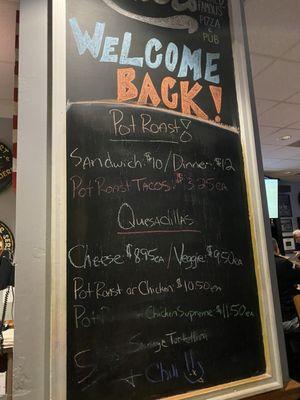 FAMOUS
PIZZA
& PUB
WELCOME
BACK!
Pot Roast
Sandwich: $10 / Dinner: $12
Pot Roast Tacos: $3.25 ea
Quesadillas
Cheese: $8.95 ea / Veggie: $9.50 ea
Pot Roast or Chicken: $10.50 ea
Chicken Supreme: $11.50
Sausage Tortellini
+ Chili